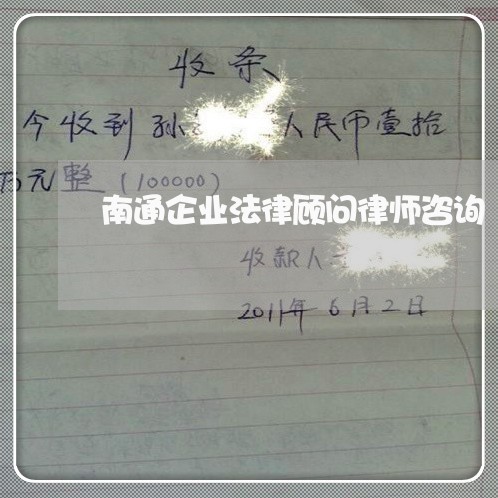 收条
今收到孙 人民币壹拾
万元整（100000）
南通企业法律顾问律师咨询
收款人
2011年6月2日